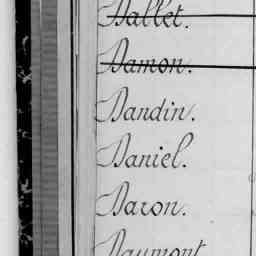 Dallet.
Damon.
Dandin.
Daniel.
Daron.
Daumont